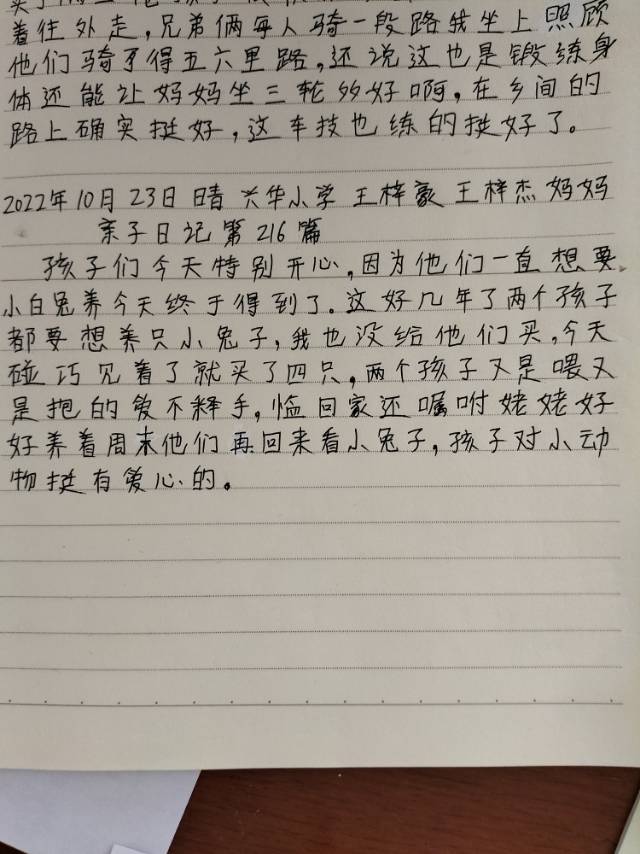 着往外走，兄弟俩每人骑一段路我坐上照顾
他们骑了得五六里路，还说这也是锻练身
体还能让妈妈坐三轮多好啊，在乡间的
路上确实挺好，这车技也练的挺好了。
2022年10月23日 晴 兴华小学 王梓豪 王梓杰 妈妈
亲子日记第216篇
孩子们今天特别开心，因为他们一直想要
小白兔养今天终于得到了。这好几年了两个孩子
都要想养只小兔子，我也没给他们买，今天
碰巧见着了就买了四只，两个孩子又是喂又
是抱的爱不释手，回家还嘱咐姥姥好
好养着周末他们再回来看小兔子，孩子对小动
物挺有爱心的。